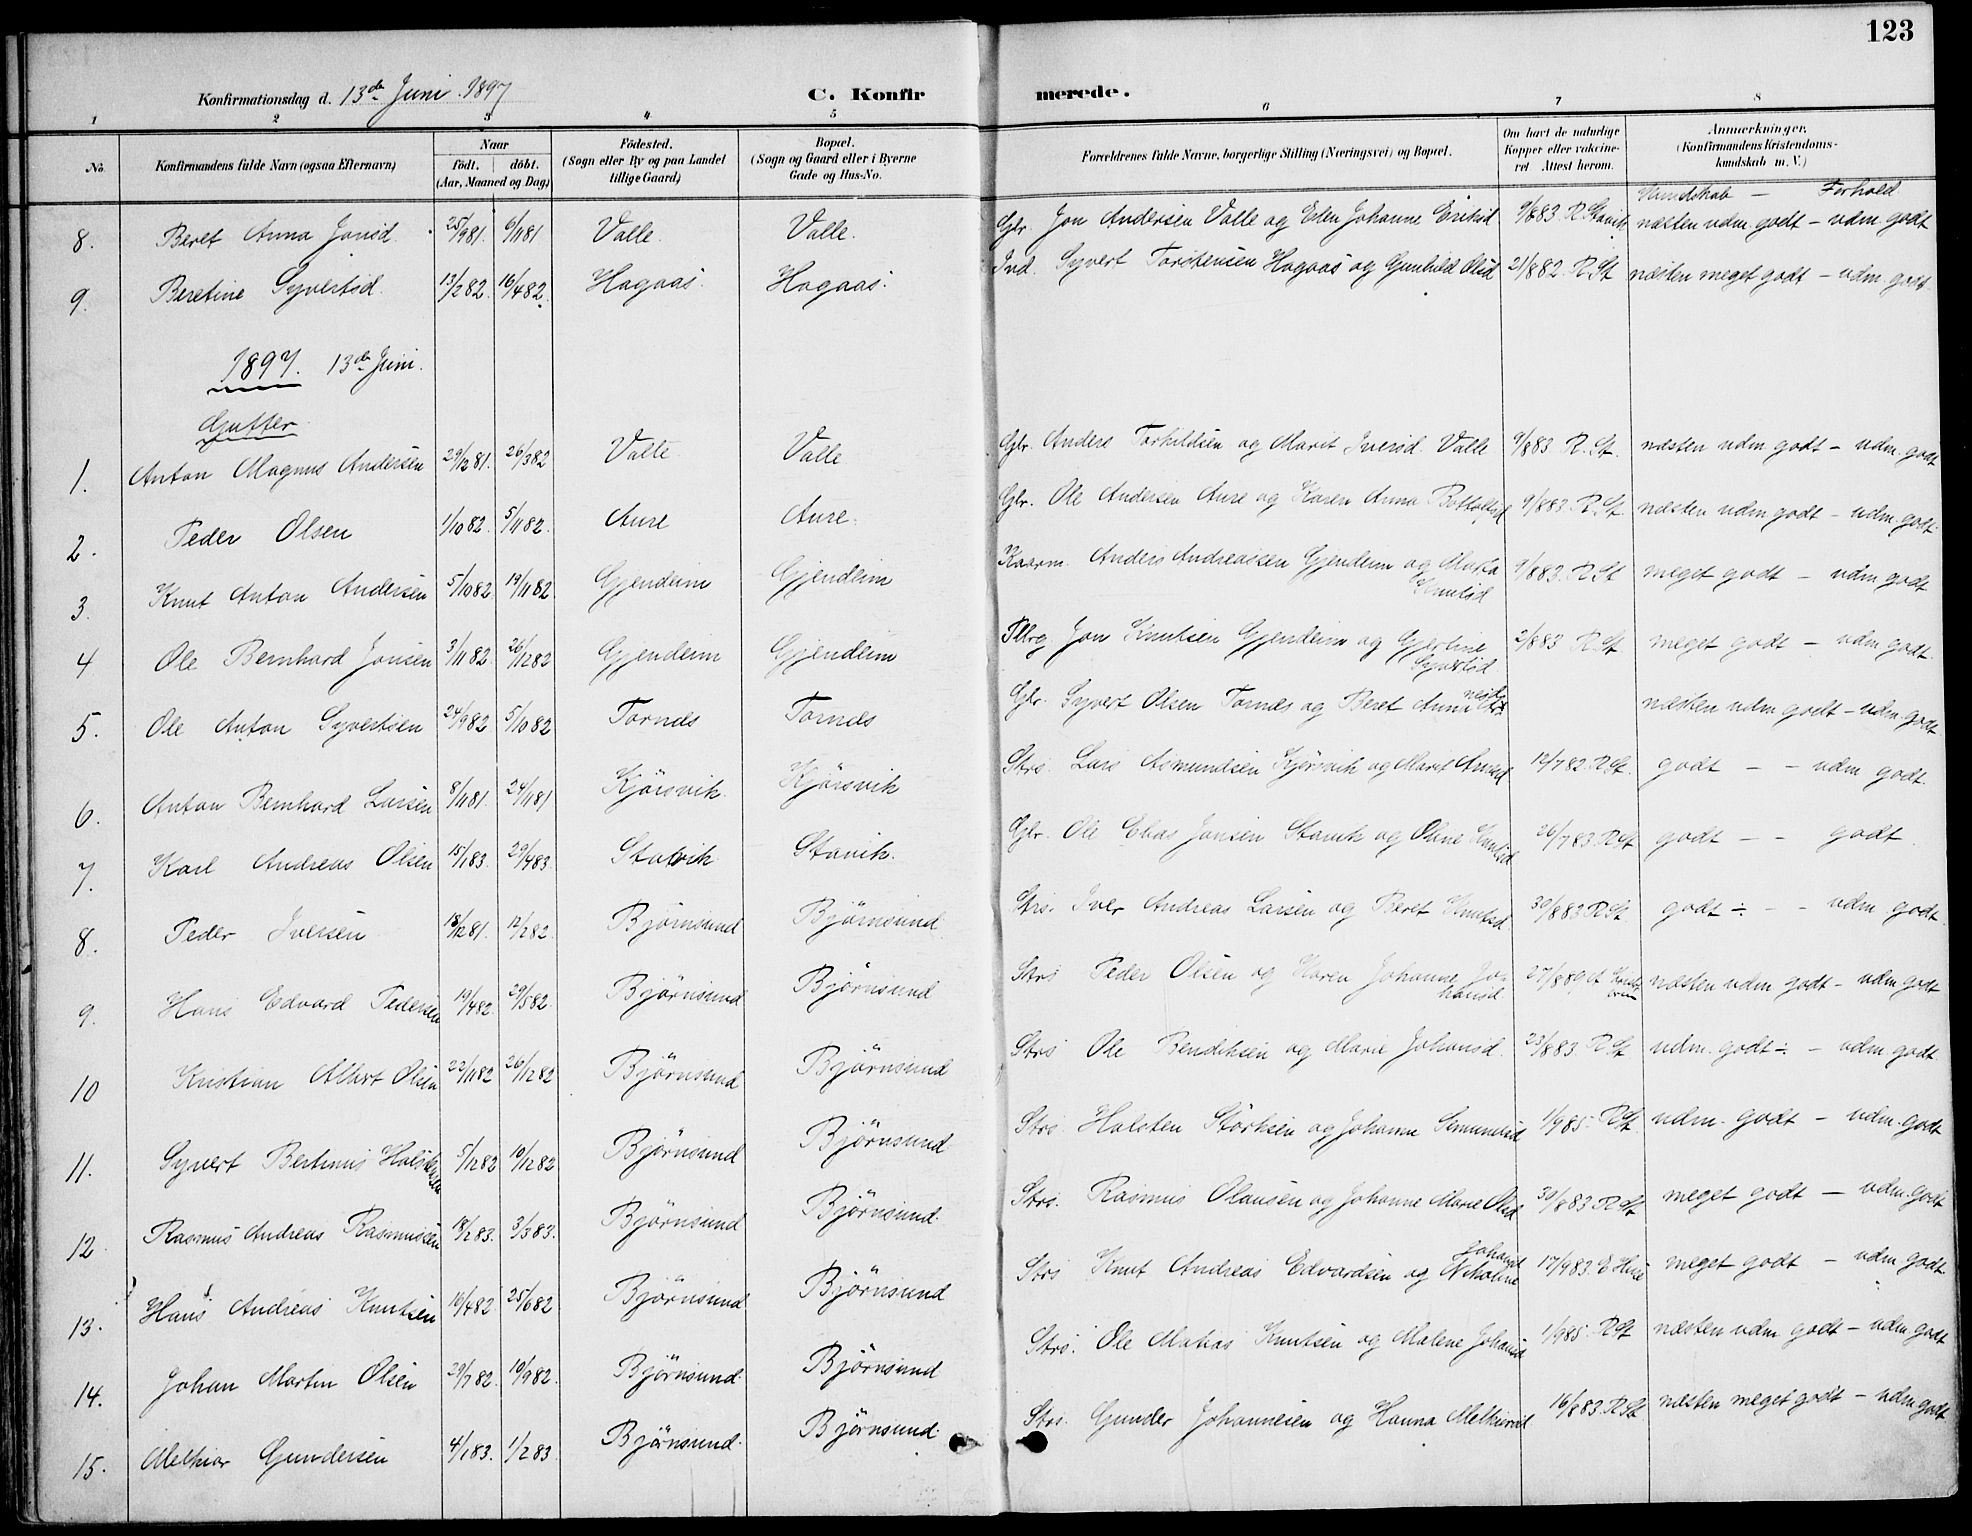 123
Konfirmationsdag d. 13de Juni 1897
C. Konfirmerede.
1 2 3 4 5 6 7 8
No.
Konfirmandens fulde Navn (ogsaa Efternavn)
Naar
födt. döbt.
(Aar, Maaned og Dag)
Födested.
(Sogn eller By og paa Landet
tillige Gaard)
Bopæl.
(Sogn og Gaard eller i Byerne
Gade og Hus-No.
Forældrenes fulde Navne, borgerlige Stilling (Næringsvei) og Bopæl.
Om havt de naturlige
Kopper eller vakcine-
ret Attest herom.
Anmærkninger.
(Konfirmandens Kristendoms-
kundskab m. V.)
Kundskab — Forhold
8. Beret Anna Jonsd. 25/981. 6/1181 Valle. Valle. Gbr. Jon Andersen Valle og Elen Johanne Eriksd 9/883 R Stavik næsten udm. godt – udm. godt
9. Beretine Syvertsd. 13/282. 16/482. Hagaas. Hagaas. Ind. Syvert Torstensen Hagaas og Gunhild Olsd 21/882. R. St næsten meget godt – udm. godt
1897. 13de Juni.
Gutter.
1. Anton Magnus Andersen 29/1281. 26/382 Valle Valle Gbr. Anders Torkildsen og Marit Iversd. Valle 9/883. R. St. næsten udm godt – udm. godt
2. Peder Olsen 1/1082. 5/1182. Aure Aure. Gbr. Ole Andersen Aure og Karen Anna 9/883. R. St næsten udm godt – udm. godt.
3. Knut Anton Andersen 5/1082 19/1182 Gjendem Gjendem Kaarm. Anders Andreassen Gjendem og Marta Knutsd 9/883. R St meget godt – udm godt
4 Ole Bernhard Jonsen 3/1182 26/1282 Gjendem Gjendem Jon Knutsen Gjendem og Gjertine Syvertsd 2/883 R. St meget godt – udm godt.
5. Ole Anton Syvertsen 24/982 5/1082 Tornæs Tornæs Gbr. Syvert Olsen Tornæs og Beret Anna næsten udm godt – udm. godt
6. Anton Bernhard Larsen 8/1181. 24/1181 Kjørsvik. Kjørsvik Strs. Lars Asmundsen Kjørsvik og Marit 12/782. R St. godt – – udm godt.
7. Karl Andreas Olsen 15/183. 29/483. Stavik Stavik. Gbr. Ole Elias Jonsen Stavik og Olave Knutsd 26/783. R St godt – – godt.
8. Peder Iversen 18/1281. 12/282. Bjørnsund Bjørnsund Strs. Iver Andreas Larsen og Beret Knutsd 30/883. R St. godt ÷ – – udm godt.
9. Hans Edvard Pedersen 19/482. 29/582. Bjørnsund Bjørnsund Strs Peder Olsen og Karen Johanne Johansd 27/889 næsten udm godt – udm godt
10 Kristian Albert Olsen 22/1182 26/1282 Bjørnsund Bjørnsund Strs Ole Bendiksen og Marie Johansd. 23/883. R St udm. godt ÷ – udm. godt.
11. Syvert Bertinus Halstensen 5/1282 10/1282 Bjørnsund Bjørnsund Strs. Halsten Størksen og Johanne 1/985. R St. udm. godt – udm. godt
12 Rasmus Andreas Rasmussen 18/283. 3/383. Bjørnsund Bjørnsund. Strs. Rasmus Olausen og Johanne Marie Olsd 30/883. R St. meget godt – udm. godt
13. Hans Andreas Knutsen 16/482 25/682 Bjørnsund Bjørnsund Strs Knut Andreas Edvardsen og Nikoline 17/983. meget godt – udm godt
14. Johan Martin Olsen 29/782. 10/982. Bjørnsund. Bjørnsund Strs. Ole Matias Knutsen og Malene Johansd 1/985. R St næsten udm. godt – udm. godt
15. Melkior Gundersen 4/183. 1/283 Bjørnsund. Bjørnsund. Strs. Gunder Johannesen og Hanna Melkiorsd 16/883. R St næsten meget godt – udm godt